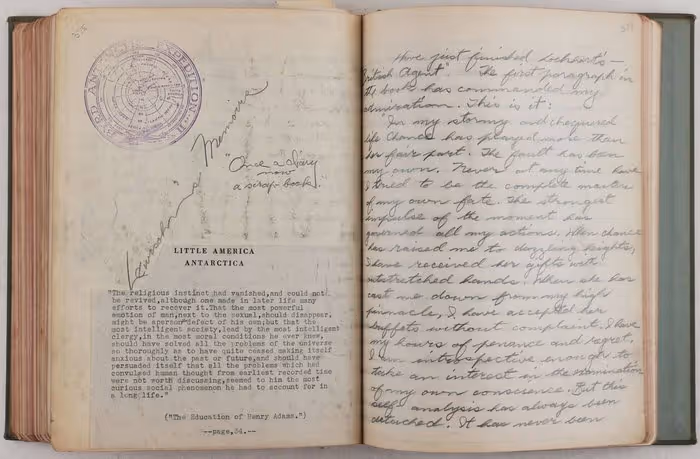 BYRD ANTARCTIC EXPEDITION II
Memories
"Once a diary
now
a scrap book."
LITTLE AMERICA
ANTARCTICA
"The religious instinct had vanished,and could not
be revived,although one made in later life many
efforts to recover it.That the most powerful
emotion of man,next to the sexual,should disappear,
might be a personal defect of his own;but that the
most intelligent society,lead by the most intelligent
clergy,in the most moral conditions he ever knew,
should have solved all the problems of the universe
so thoroughly as to have quite ceased making itself
anxious about the past or future,and should have
persuaded itself that all the problems which had
convulsed human thought from earliest recorded time
were not worth discussing,seemed to him the most
curious social phenomenon he had to account for in
a long life."
("The Education of Henry Adams.")
--page,34.--
Have just finished Lockhart's –
"British Agent". The first paragraph in
the book has commanded my
admiration. This is it:
"In my stormy and chequered
life Chance has played more than
her fair part. The fault has been
my own. Never at any time have
I tried to be the complete master
of my own fate. The strongest
impulse of the moment has
governed all my actions. When chance
has raised me to dazzling heights,
I have received her gifts with
outstretched hands. When she has
cast me down from my high
pinnacle, I have accepted her
buffets without complaint. I have
my hours of penance and regret.
I am introspective enough to
take an interest in the examination
of my own conscience. But this
self analysis has always been
detached. It has never been